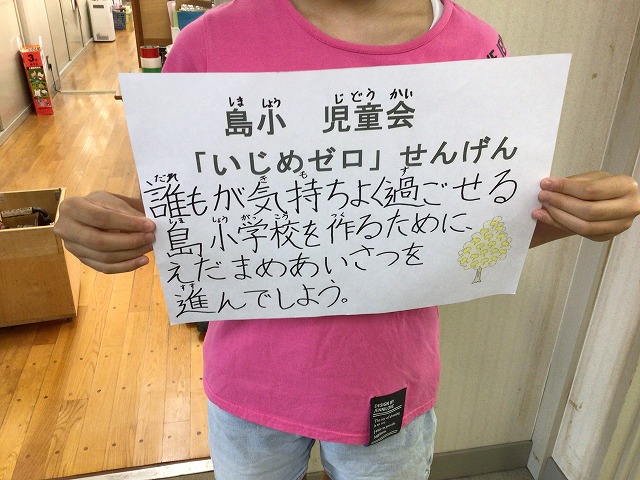 島小 児童会
「いじめゼロ」せんげん
誰もが気持ちよく過ごせる
島小学校を作るために、
えだまめあいさつを
進んでしよう。
DESIGN BY